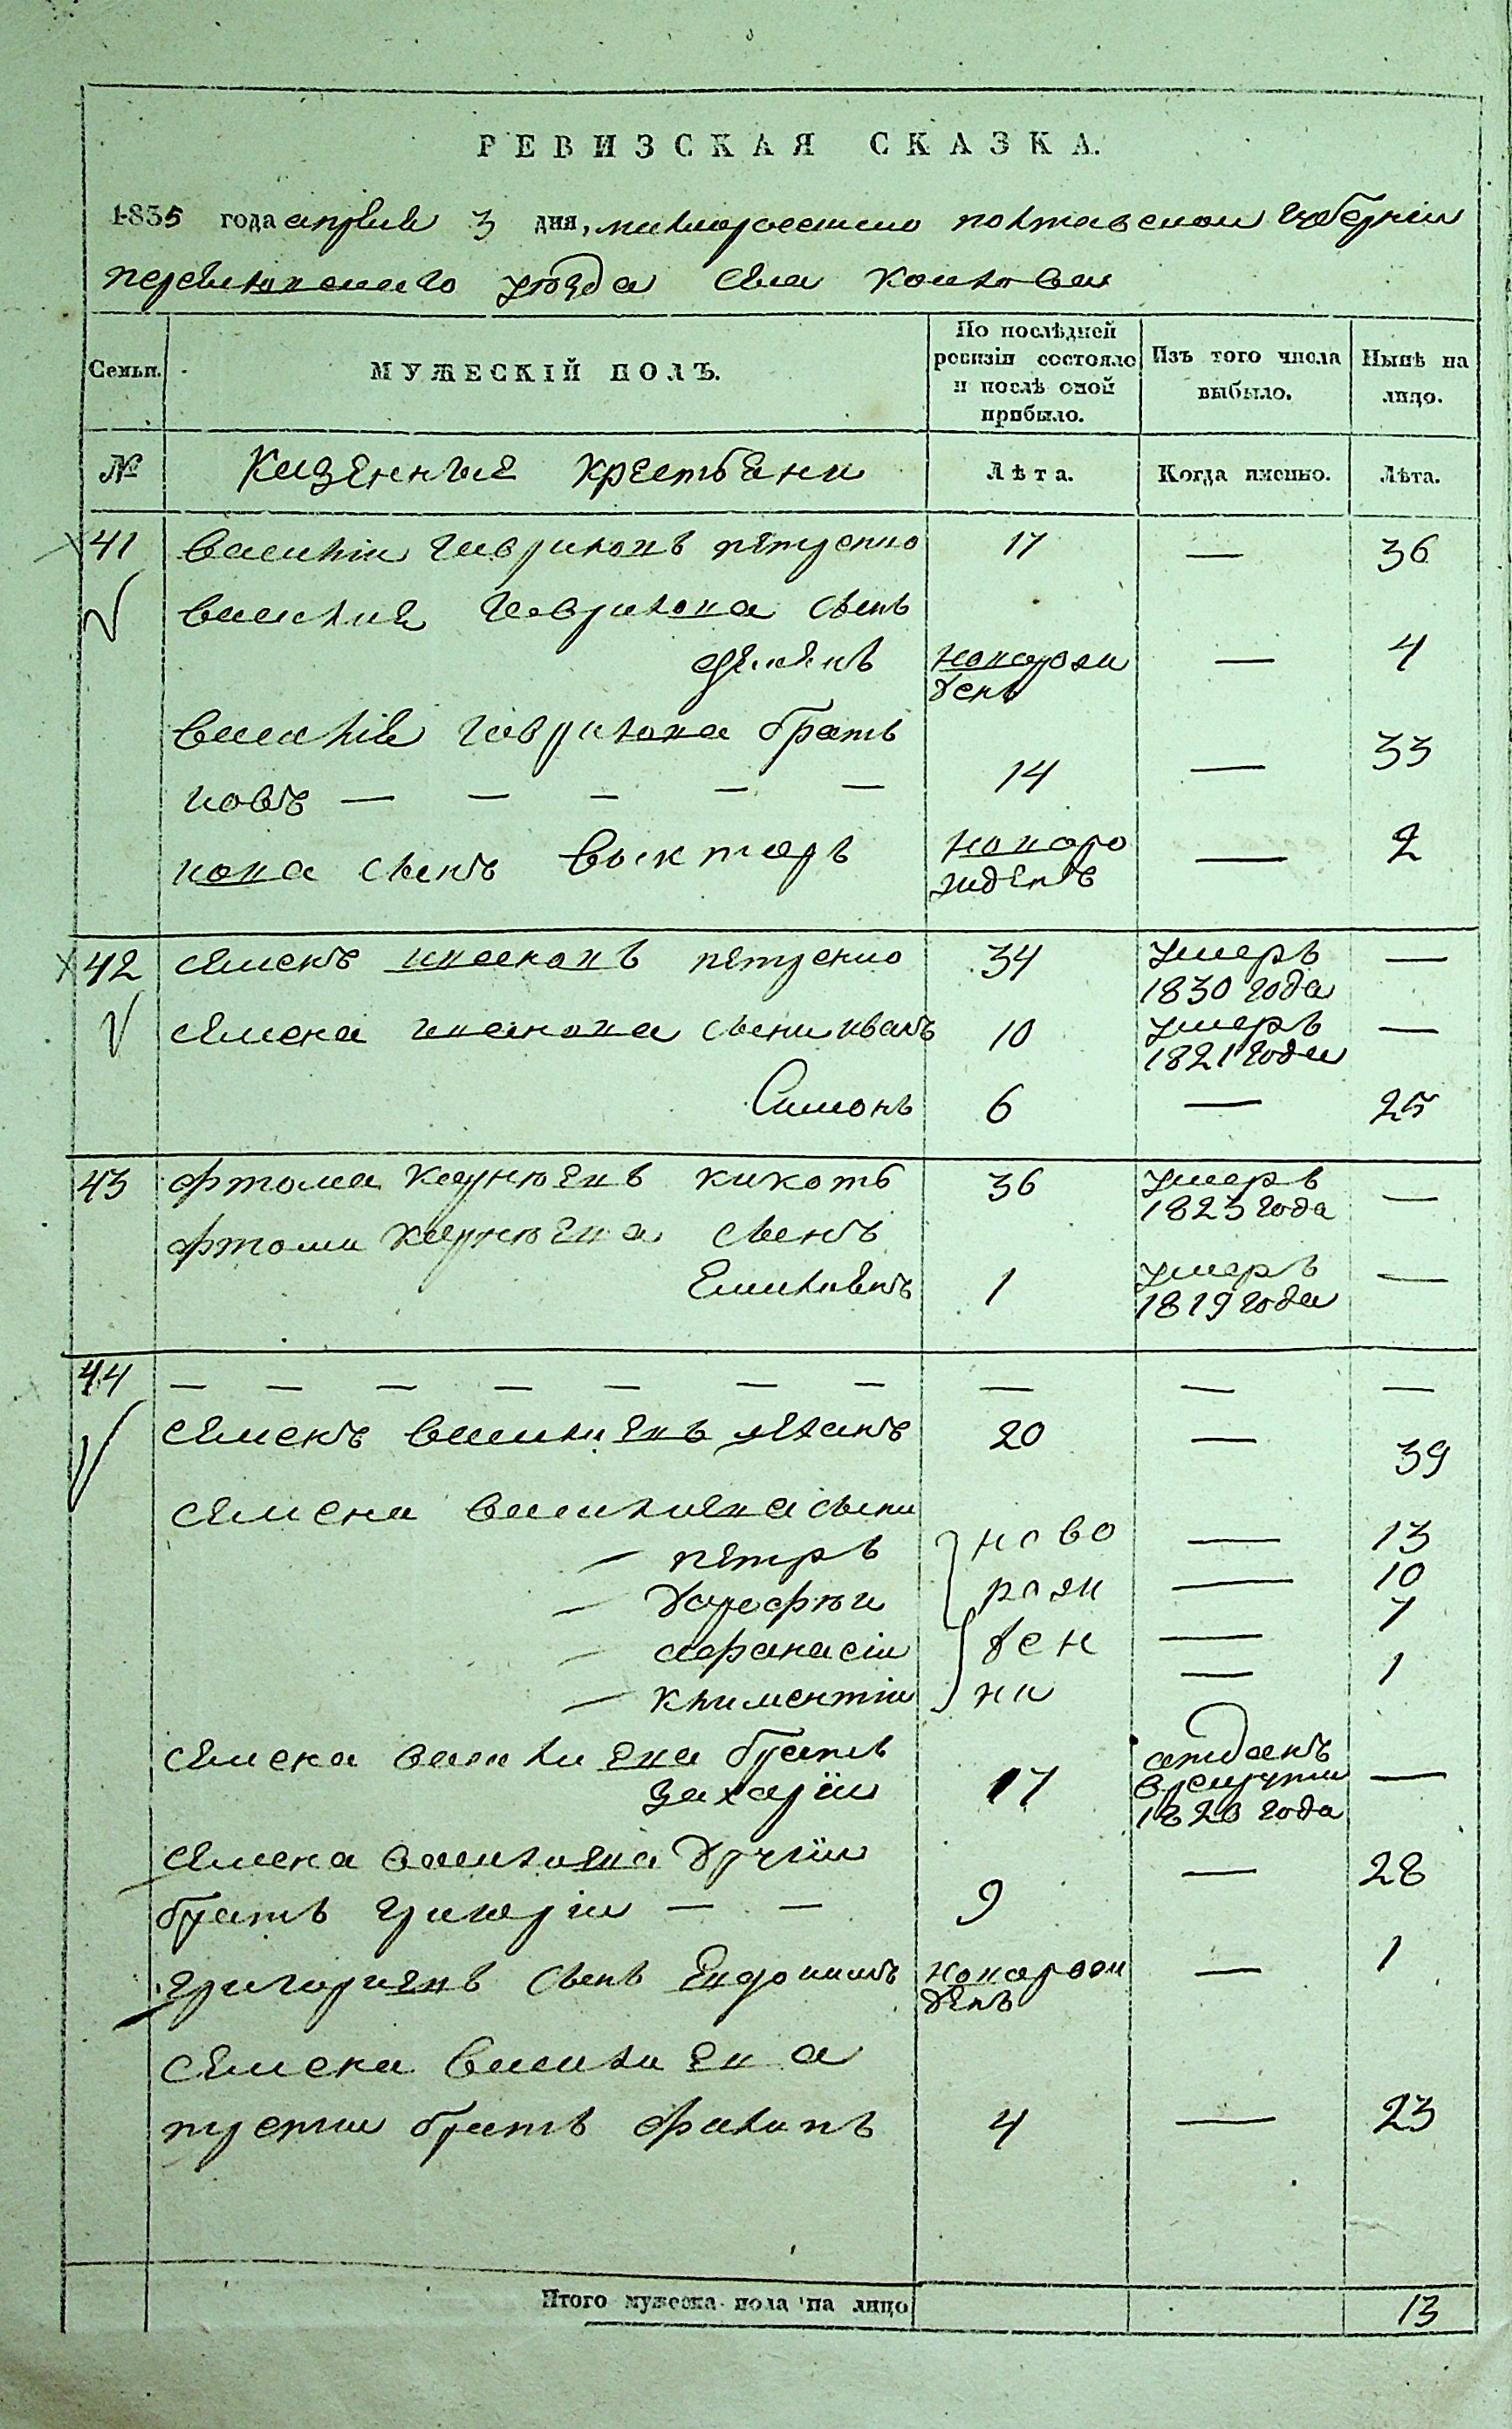 РЕВИЗСКАЯ СКАЗКА.
1835 года апреля 3 дня, малоросѣтско полтавскои губерніи
переяловского уюзда села
Семьи. МУЖЕСКІЙ ПОЛЪ. По послѣдней ревизіи состояло и послѣ оной прибыло. Изъ того числа выбыло. Нынѣ на лицо.
№ Казенные крестбяни Лѣта. Когда именно. Лѣта.
41 василіи гаврилокъ пѣтренко 17 — 36
василия гаврилока сынъ
семенъ новорожденъ — 4
василія гаврилока братъ
иовъ — — — — — 14 — 33
иова сынъ выкторъ новорожденъ — 2
42 семенъ пѣтренко 34 умеръ 1830 года —
семена сыни иванъ 10 умеръ 1821 года —
Симонъ 6 — 25
43 фтома кикоть 36 умеръ 1823 года —
фтоми сынъ
Емилианъ 1 умеръ 1819 года —
44 — — — — — — — — — —
семенъ василиевъ 20 — 39
семена василиева сыни
— петръ ново — 13
— дорофѣи рожи — 10
— афанасіи ден — 7
— климентіи ни — 1
семена василиева братъ
захаріи 17 отданъ в рекруты 1820 года —
семена василиева другіи — 28
братъ григоріи — — 9
григориевъ сынъ новорожденъ — 1
семена василиева
третіи братъ филипъ 4 — 23
Итого мужеска пола на лицо 13